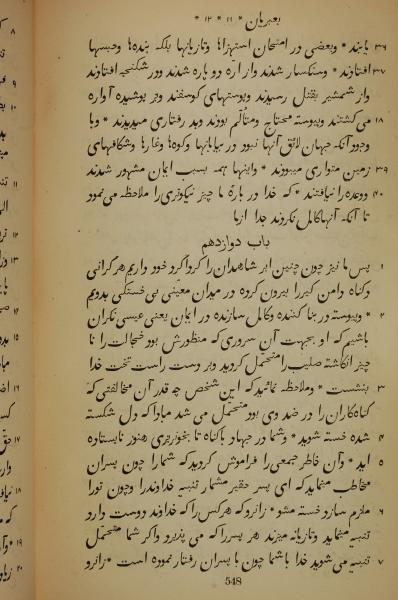 بعبریان * ۱۱ * ۱۲ *
۳۶ یابند * وبعضی در امتحان استهزاها وتازیانها بلکه بندها وحبسها
۳۷ افتادند * وسنکسار شدند واز اره دو پاره شدند ودر شکنجه افتادند
واز شمشیر بقتل رسیدند وبپوستهای کوسفند وبز پوشیده آواره
۳۸ می کشتند وپیوسته محتاج ومتألم بودند وبد رفتاری میدیدند * وبا
وجود آنکه جهان لائق آنها نبود در بیابانها وکوه‌ها وغارها وشکافهای
۳۹ زمین متواری میبودند * واینها همه بسبب ایمان مشهور شدند
۴۰ ووعده را نیافتند * که خدا در بارهٔ ما چیز نیکوتری را ملاحظه می نمود
تا آنکه آنها کامل نکردند جدا از ما
باب دوازدهم
۱ پس ما نیز چون چنین ابر شاهدان را کرداکرد خود داریم هر کرانی
وکناه دامن کیر را بیرون کرده در میدان معینی بی خستکی بدویم
۲ * وپیوسته در بنا کننده وکامل سازنده در ایمان یعنی عیسی نکران
باشیم که او بجهت آن سروری که منظورش بود خجالت را نا
چیز انکاشته صلیب را متحمل کردید وبر دست راست تخت خدا
۳ بنشست * وملاحظه نمائید که این شخص چه قدر آن مخالفتی که
کناه‌کاران را در ضد وی بود متحمل می شد مبادا که دل شکسته
۴ شده خسته شوید * وشما در جهاد با کناه تا بخونریزی هنوز نایستاده
۵ اید * وآن خاطر جمعی را فراموش کردید که شما را چون پسران
مخاطب مینماید که ای پسر حقیر مشمار تنبیه خداوند را وچون تو را
۶ ملزم سازد خسته مشو * زانرو که هر کس را که خداوند دوست دارد
تنبیه مینماید وتازیانه میزند هر پسر را که می پذیرد واکر شما متحمل
۷ تنبیه می شوید خدا با شما چون با پسران رفتار نموده است * زانرو
548